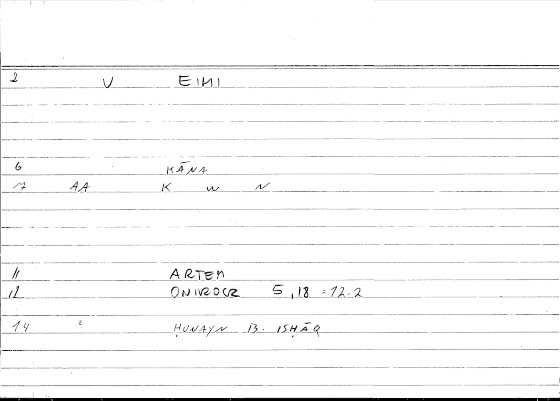 2 V EIMI
6 KĀNA
7 AA K W N
11 ARTEM
12 ONIROCR 5,18 = 12.2
14 ḤUNAYN B. ISḤĀQ